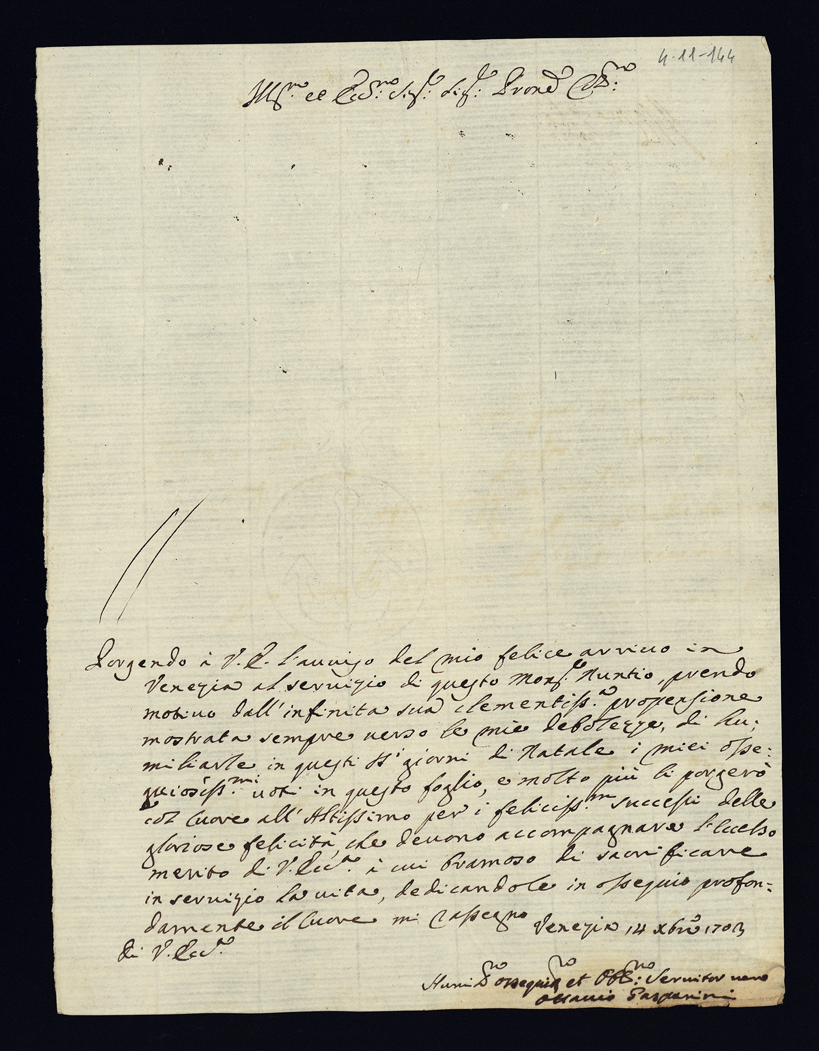 4-11-144
Ill.mo et Ecc.mo Sig.r Sig.r Pron.e Col.mo
Porgendo à V.E. l'auuiso del mio felice arriuo in
Venezia al seruizio di questo Mons.r Nuntio, prendo
motiuo dall'infinita sua clementiss.a propensione
mostrata sempre uerso le mie debolezze, di hu:
miliarle in questi SS.i giorni di Natale i miei osse:
quiosiss.mi uoti in questo foglio, e molto più li porgerò
col Cuore all'Altissimo per i feliciss.mi successi delle
gloriose felicità, che deuono accompagnare l'Eccelso
merito di V.Ecc.a à cui bramoso di sacrificare
in seruizio la uita, dedicandole in ossequio profon:
damente il Cuore mi rassegno
Di V.Ecc.a
Venezia 14 Xbre 1703
Humi.mo ossequi.mo et Obl.mo Seruitor uero
Ottauio Gasparini